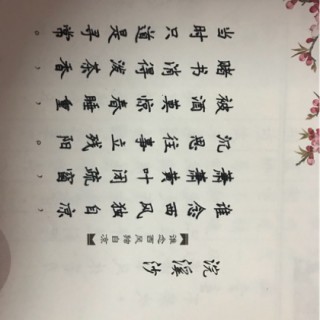 浣溪沙
谁念西风独自凉
谁念西风独自凉，
萧萧黄叶闭疏窗，
沉思往事立残阳。
被酒莫惊春睡重，
赌书消得泼茶香，
当时只道是寻常。